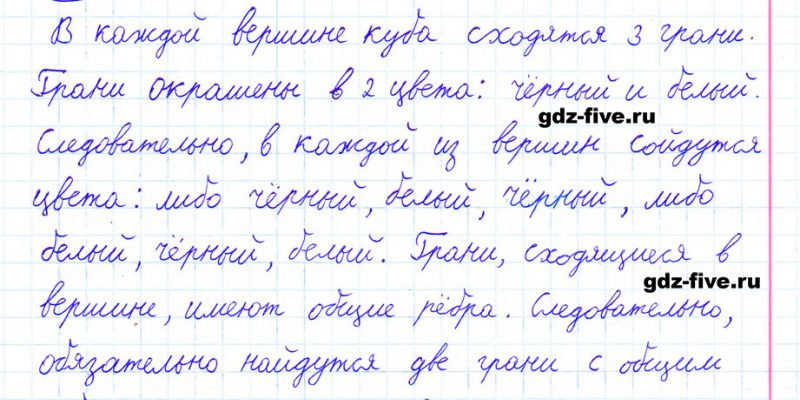 В каждой вершине куба сходятся 3 грани.
Грани окрашены в 2 цвета: чёрный и белый.
gdz-five.ru
Следовательно, в каждой из вершин сойдутся
цвета: либо чёрный, белый, чёрный, либо
белый, чёрный, белый. Грани, сходящиеся в
gdz-five.ru
вершине, имеют общие рёбра. Следовательно,
обязательно найдутся две грани с общим